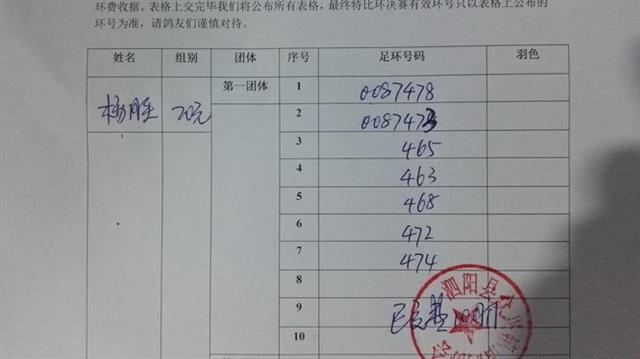 环费收据。表格上交完毕我们将公布所有表格，最终特比环决赛有效环号只以表格上公布的
环号为准，请鸽友们谨慎对待。
姓名 组别 团体 序号 足环号码 羽色
杨胜 20元 第一团体 1 0087478
2 0087473
3 465
4 463
5 468
6 472
7 474
8
9
10
泗阳县